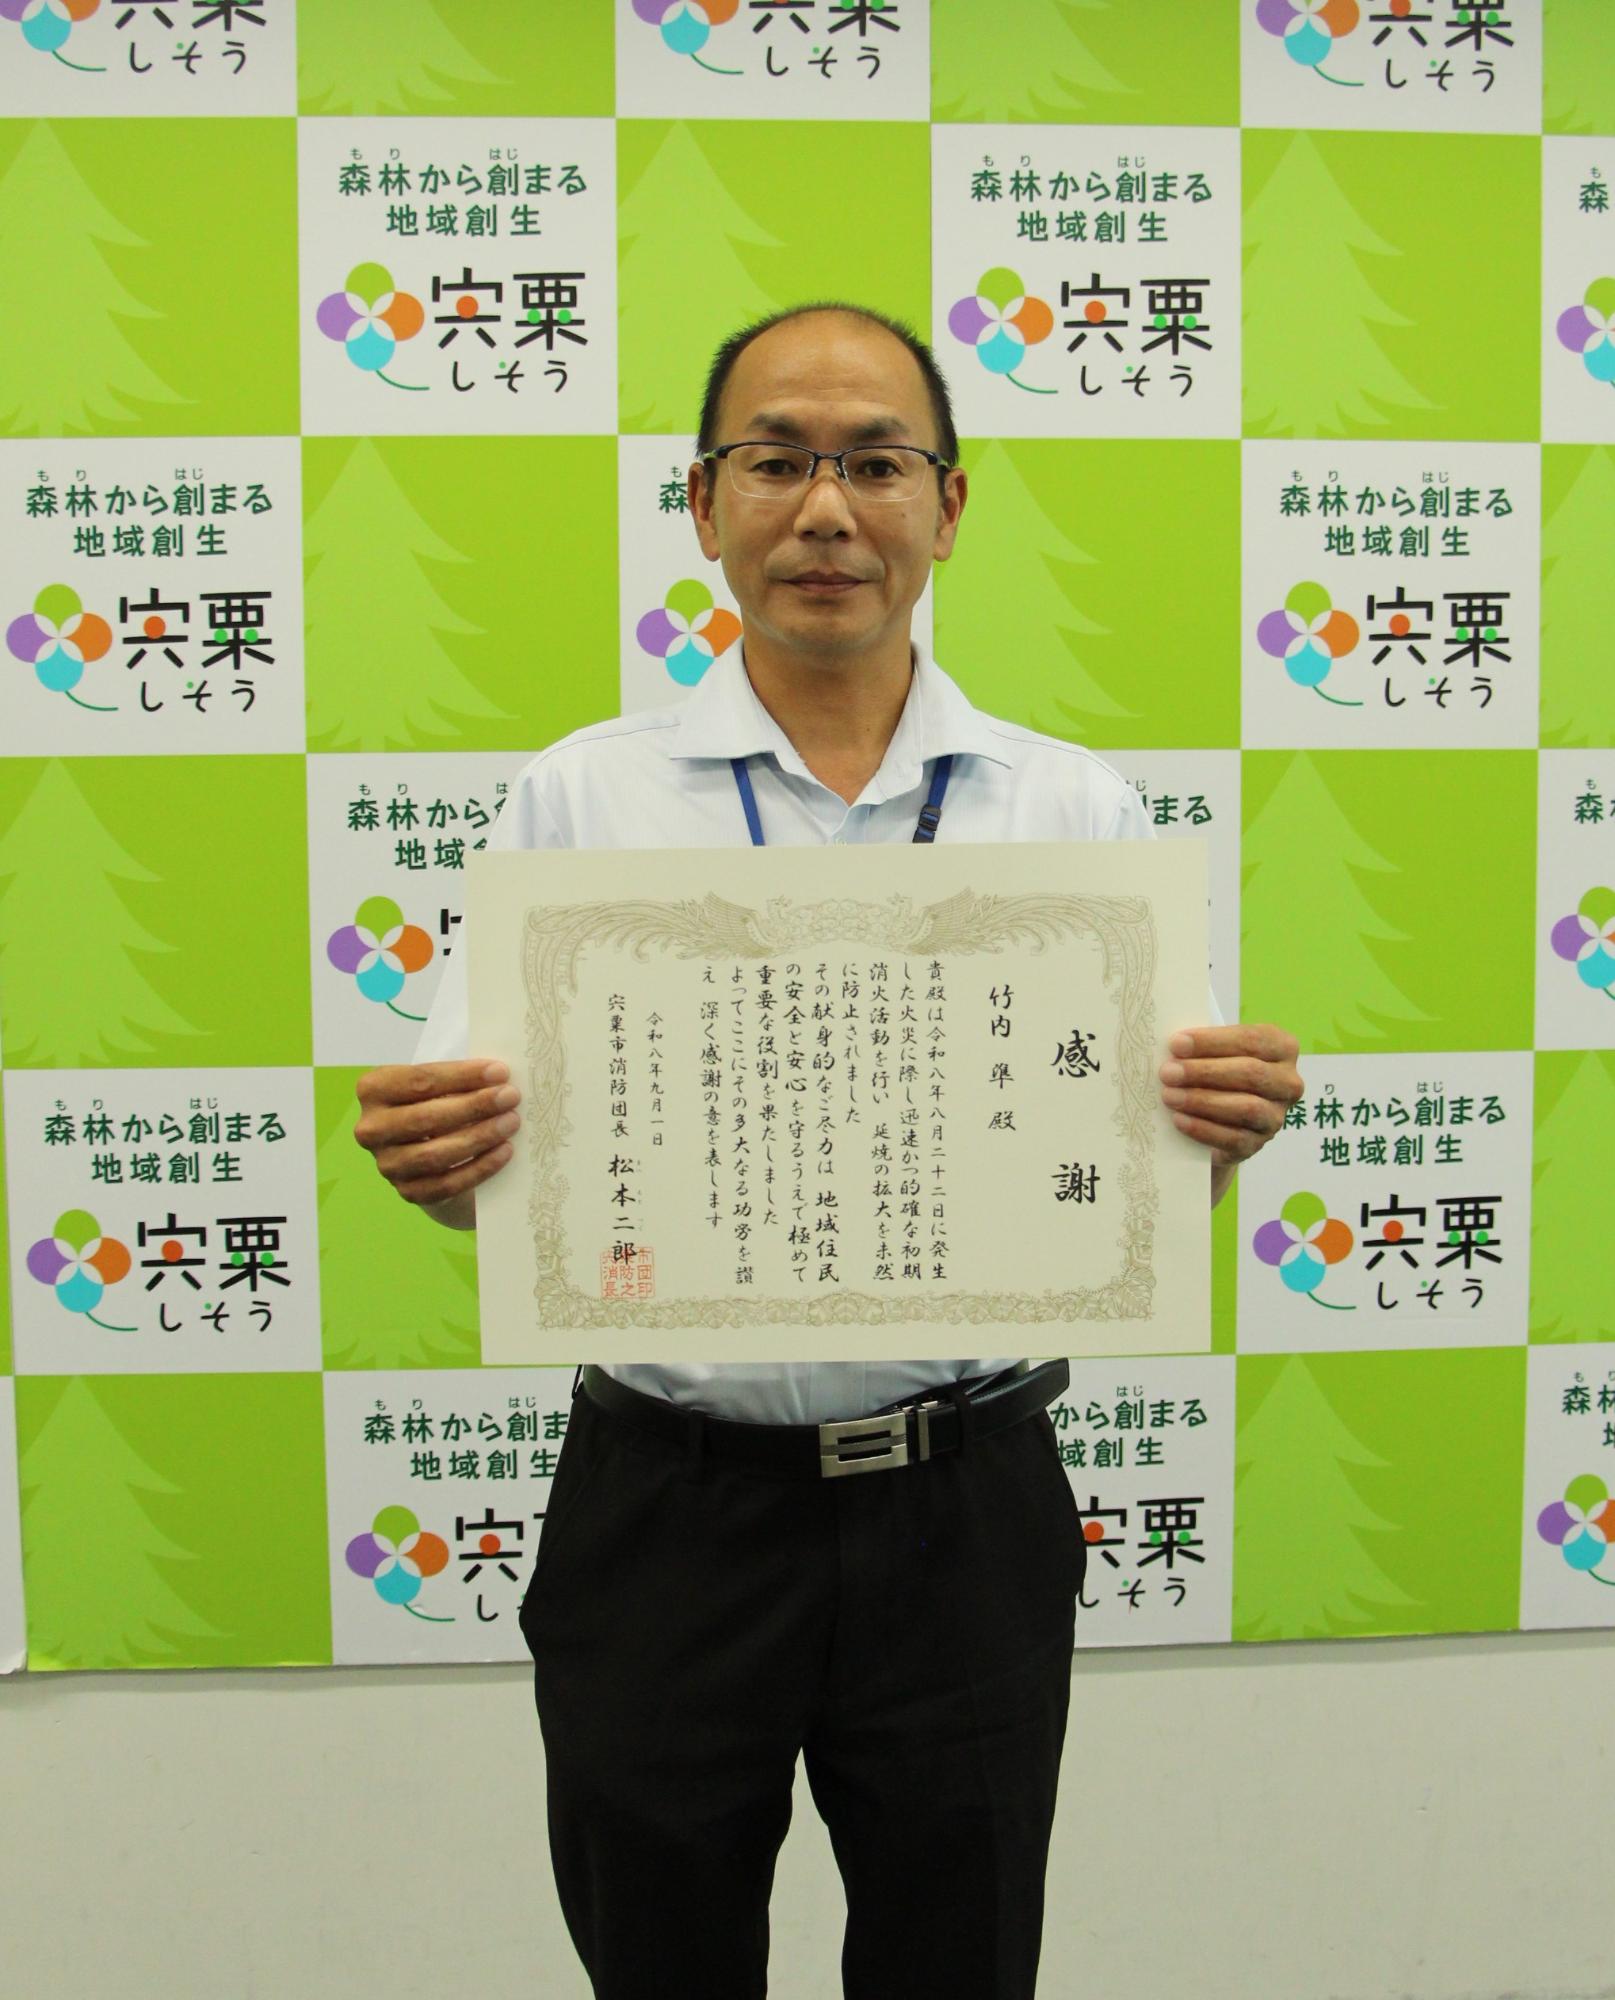 しそう
しそう
しそう
森林から創まる
地域創生
宍粟
しそう
森林から創まる
地域創生
宍粟
しそう
森林から創まる
地域創生
宍粟
しそう
森林から創まる
地域創生
宍粟
しそう
感謝
竹内準殿
貴殿は令和八年八月二十二日に発生
した火災に際し迅速かつ的確な初期
消火活動を行い 延焼の拡大を未然
に防止されました
その献身的なご尽力は 地域住民
の安全と安心を守るうえで極めて
重要な役割を果たしました
よってここにその多大なる功労を讃
え 深く感謝の意を表します
令和八年九月一日
宍粟市消防団長 松本二郎
森林から創まる
地域創生
宍粟
しそう
森林から創まる
地域創生
宍粟
しそう
森林から創ま
地域創生
から創まる
域創生
粟
しそう